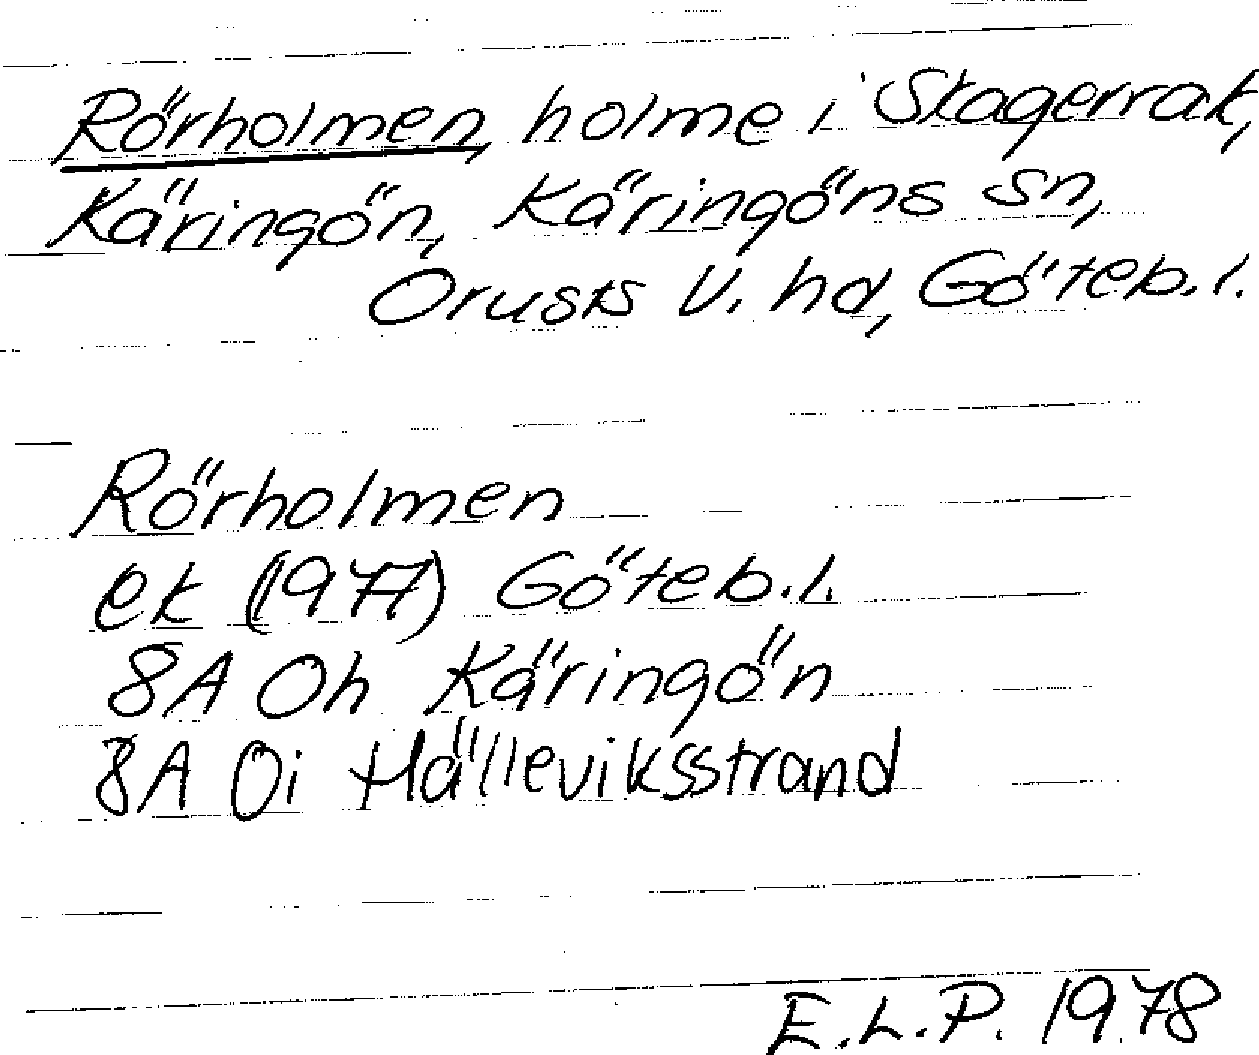 Rörholmen, holme i Skagerrak,
Käringön, Käringöns sn,
Orusts V. hd, Göteb. l.
Rörholmen
ek (1977) Göteb. l.
8A Oh Käringön
8A Oi Hälleviksstrand
E.L.P. 1978